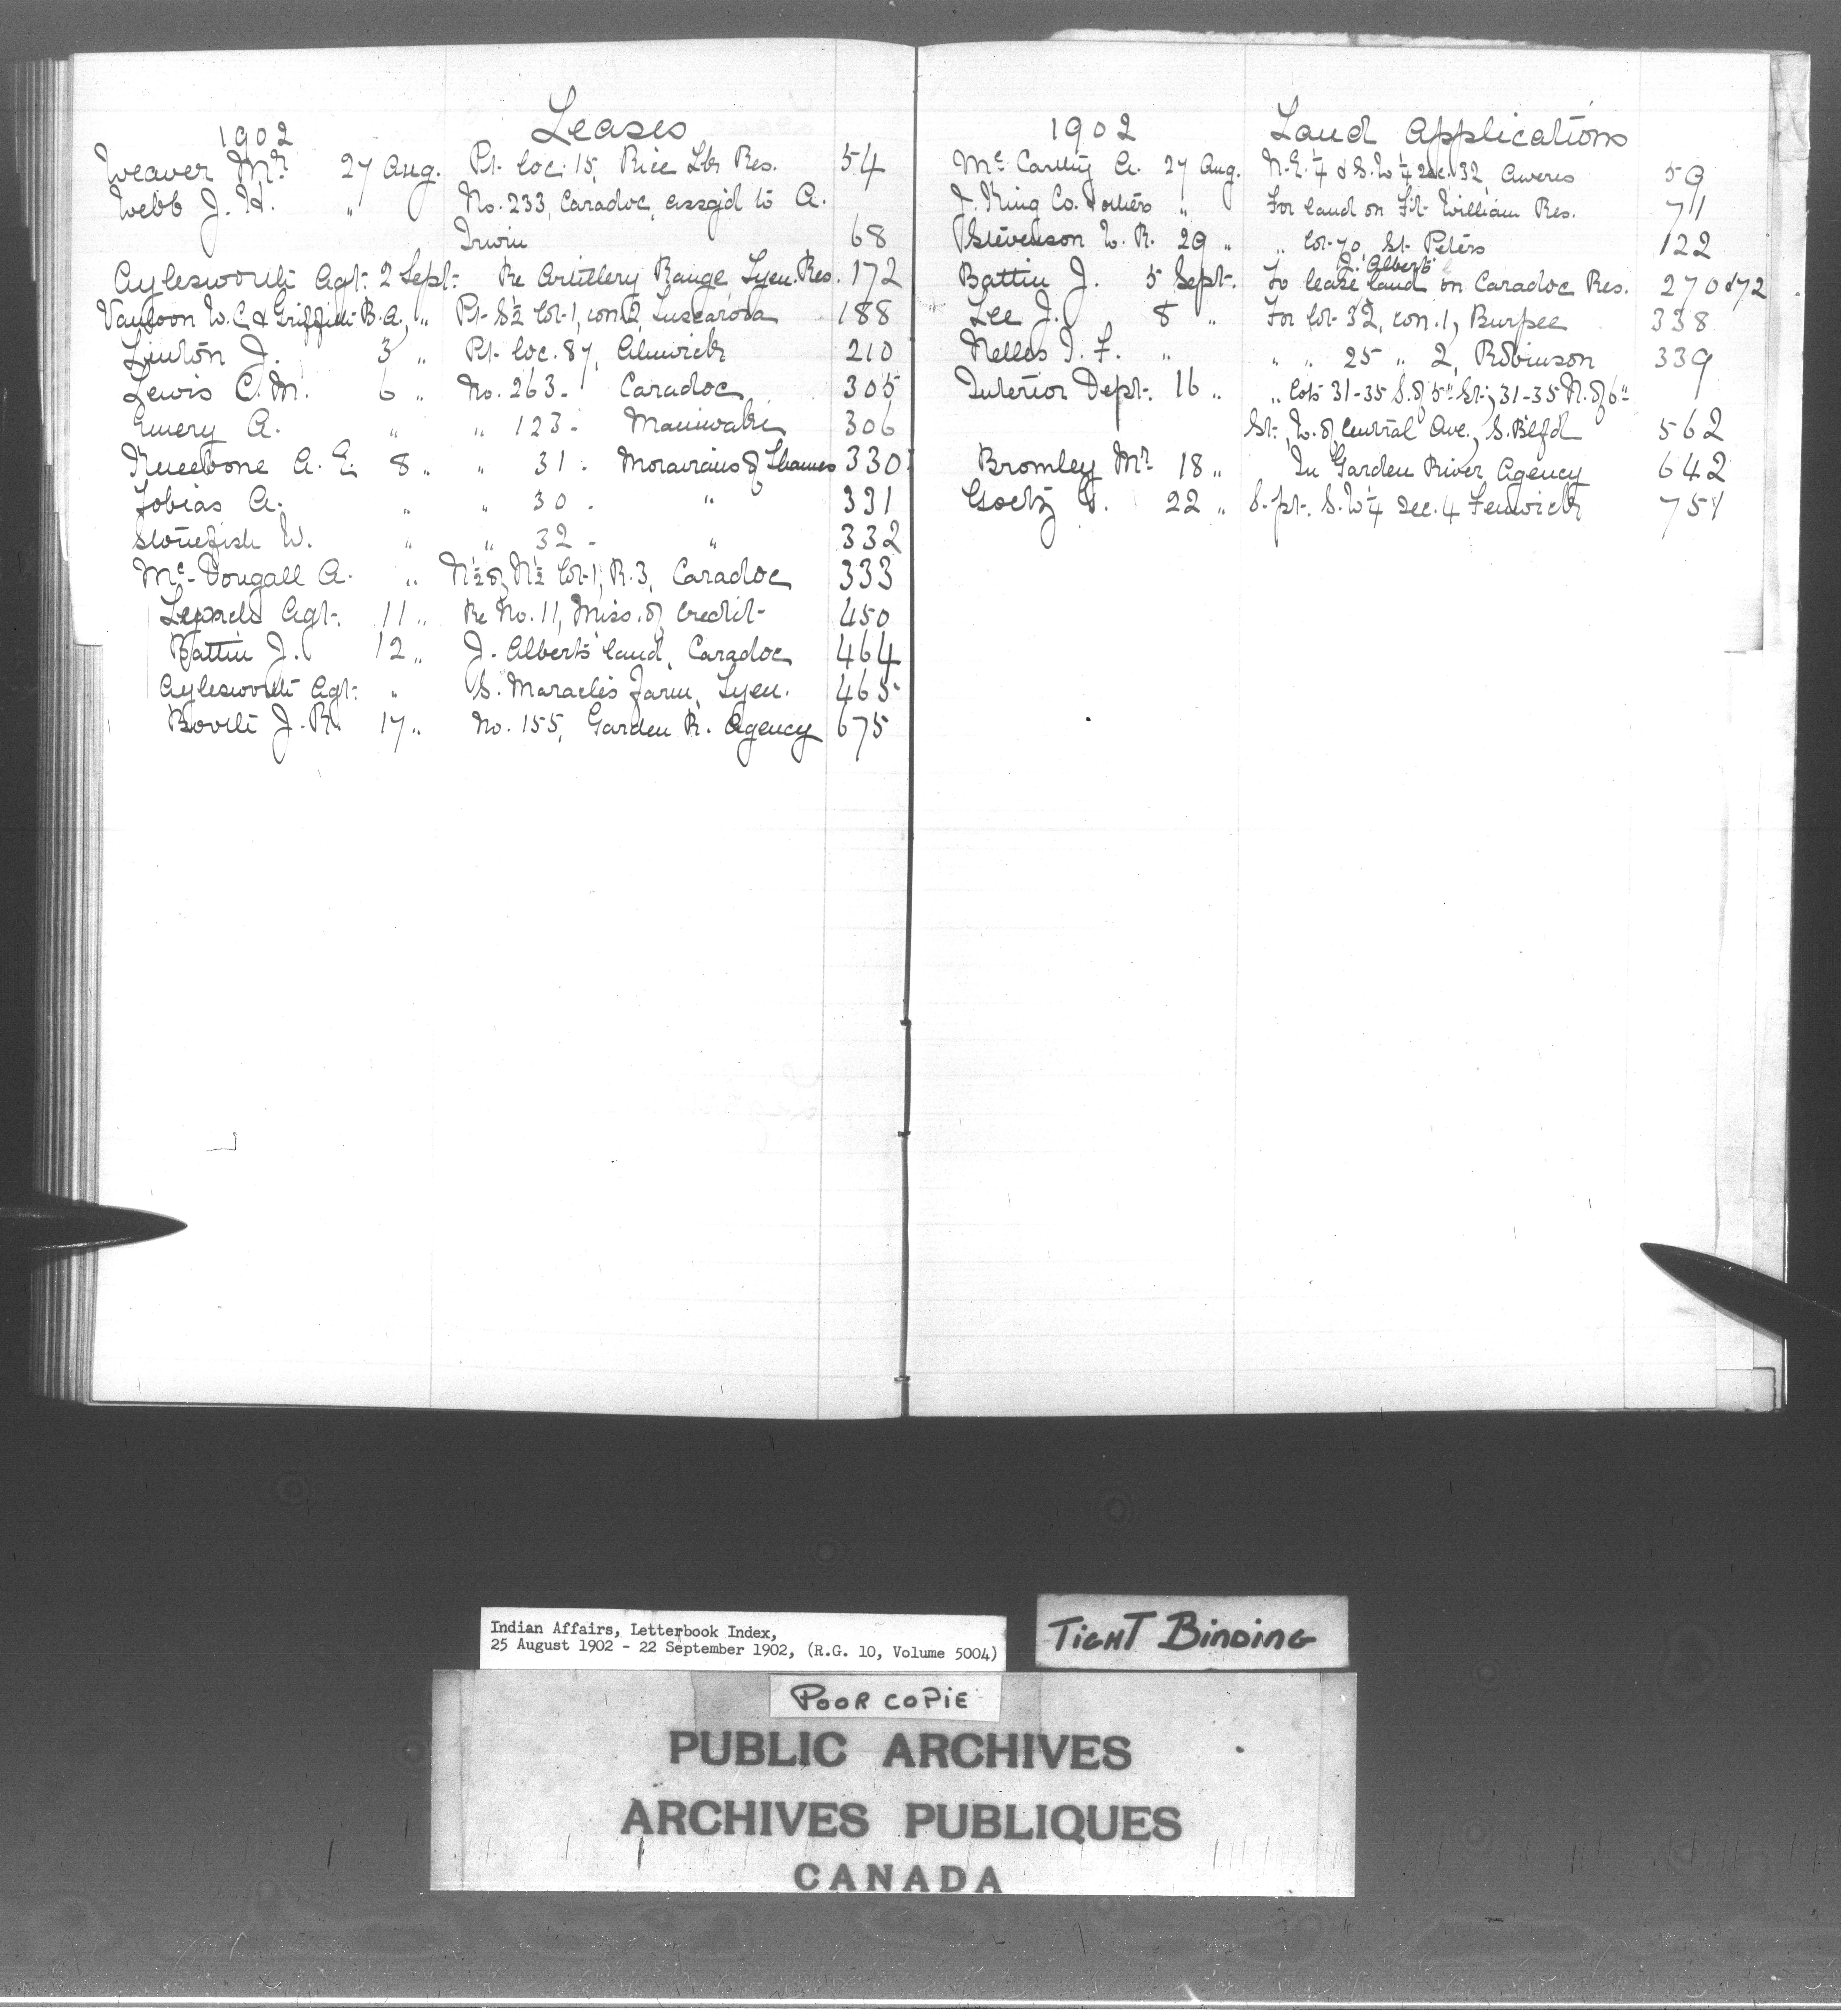 1902 Leases
Weaver Mr. 27 Aug. Pt. loc. 15, Rice Lk Res. 54
Webb J. H. " No. 233, Caradoc, assg'd to A.
Irwin 68
Aylesworth Agt. 2 Sept. Re Artillery Range, Tyen. Res. 172
Vanloon W. C. & Griffith B. A. " Pt. S½ lot 1, con 2, Tuscarora 188
Linton J. 3 " Pt. loc. 87, Alnwick 210
Lewis C. M. 6 " No. 263 - Caradoc 305
Emery A. " " 123 - Maniwaki 306
Kneebone A. E. 8 " " 31 - Moravians of Thames 330
Tobias A. " " 30 - " 331
Stonefish W. " " 32 - " 332
Mc Dougall A. " N½ of N½ lot 1, R. 3, Caradoc 333
Agt. 11 " Re No. 11, Miss. of Credit 450
Battin J. 12 " J. Albert's land, Caradoc 464
Aylesworth Agt. " S. Maracle's farm, Tyen. 465
J. R. 17 " No. 155, Garden R. Agency 675
1902 Land Applications
Mc Carthy A. 27 Aug. N.E.¼ & S.W¼ sec. 32, Aweres 59
J. King Co. & others " For land on Ft. William Res. 71
Stevenson W. R. 29 " " lot 70, St. Peters 122
J. Albert's
Battin J. 5 Sept. To lease land on Caradoc Res. 270 & 72
Lee J. 8 " For lot 32, con. 1, Burpee 338
Nelles T. F. " " " 25 " 2, Robinson 339
Interior Dept. 16 " " lots 31-35 S. of 5th St., 31-35 N. of 6th
St., W. of Central Ave., S. B'lf'd 562
Bromley Mr. 18 " In Garden River Agency 642
Goetz 22 " S. pt. S.W¼ sec. 4 Fenwick 751
Indian Affairs, Letterbook Index,
25 August 1902 - 22 September 1902, (R.G. 10, Volume 5004)
TIGHT BINDING
POOR COPIE
PUBLIC ARCHIVES
ARCHIVES PUBLIQUES
CANADA